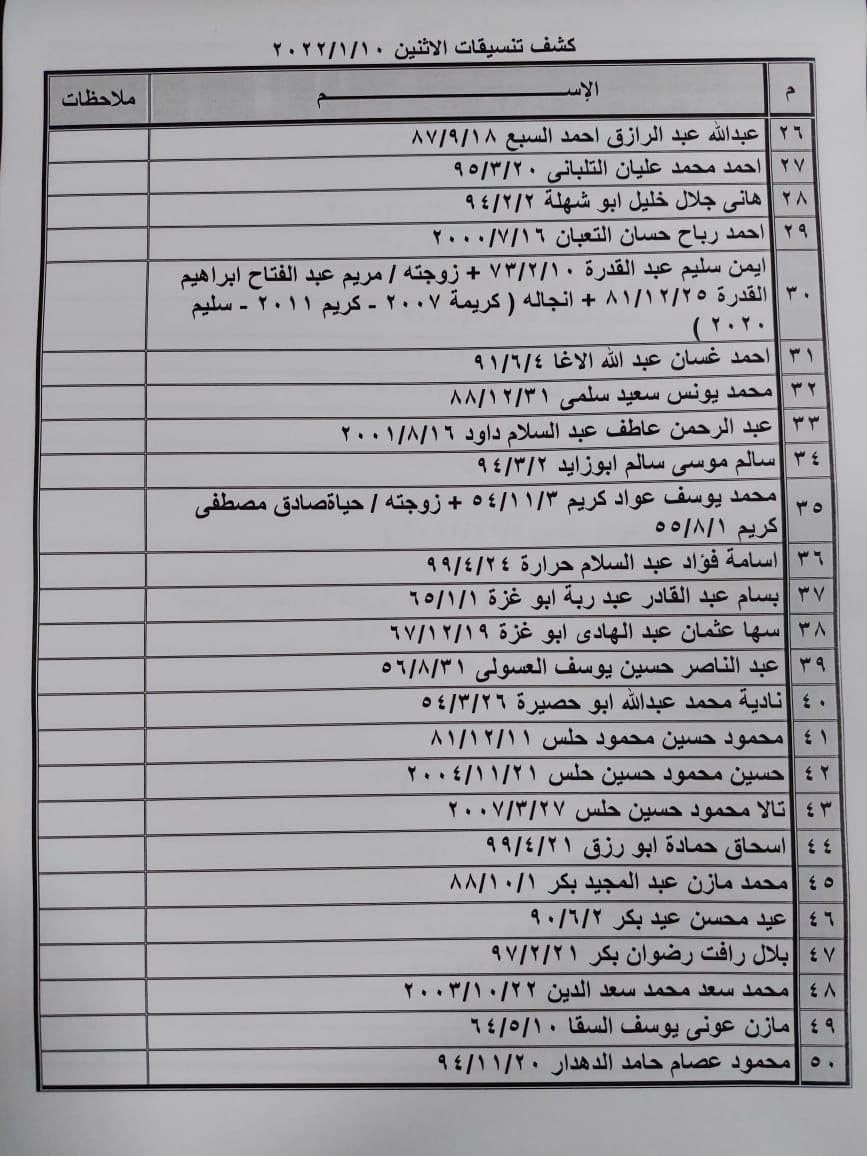 كشف تنسيقات الاثنين ٢٠٢٢/١/١٠
م الإســـــم ملاحظات
٢٦ عبدالله عبد الرازق احمد السبع ٨٧/٩/١٨
٢٧ احمد محمد عليان التلبانى ٩٥/٣/٢٠
٢٨ هانى جلال خليل ابو شهلة ٩٤/٢/٢
٢٩ احمد رباح حسان التعبان ٢٠٠٠/٧/١٦
٣٠ ايمن سليم عبد القدرة ٧٣/٢/١٠ + زوجته / مريم عبد الفتاح ابراهيم
القدرة ٨١/١٢/٢٥ + انجاله ( كريمة ٢٠٠٧ - كريم ٢٠١١ - سليم
٢٠٢٠ )
٣١ احمد غسان عبد الله الاغا ٩١/٦/٤
٣٢ محمد يونس سعيد سلمى ٨٨/١٢/٣١
٣٣ عبد الرحمن عاطف عبد السلام داود ٢٠٠١/٨/١٦
٣٤ سالم موسى سالم ابوزايد ٩٤/٣/٢
٣٥ محمد يوسف عواد كريم ٥٤/١١/٣ + زوجته / حياةصادق مصطفى
كريم ٥٥/٨/١
٣٦ اسامة فؤاد عبد السلام حرارة ٩٩/٤/٢٤
٣٧ بسام عبد القادر عبد ربة ابو غزة ٦٥/١/١
٣٨ سها عثمان عبد الهادى ابو غزة ٦٧/١٢/١٩
٣٩ عبد الناصر حسين يوسف العسولى ٥٦/٨/٣١
٤٠ نادية محمد عبدالله ابو حصيرة ٥٤/٣/٢٦
٤١ محمود حسين محمود حلس ٨١/١٢/١١
٤٢ حسين محمود حسين حلس ٢٠٠٤/١١/٢١
٤٣ تالا محمود حسين حلس ٢٠٠٧/٣/٢٧
٤٤ اسحاق حمادة ابو رزق ٩٩/٤/٢١
٤٥ محمد مازن عبد المجيد بكر ٨٨/١٠/١
٤٦ عيد محسن عيد بكر ٩٠/٦/٢
٤٧ بلال رافت رضوان بكر ٩٧/٢/٢١
٤٨ محمد سعد محمد سعد الدين ٢٠٠٣/١٠/٢٢
٤٩ مازن عونى يوسف السقا ٦٤/٥/١٠
٥٠ محمود عصام حامد الدهدار ٩٤/١١/٢٠